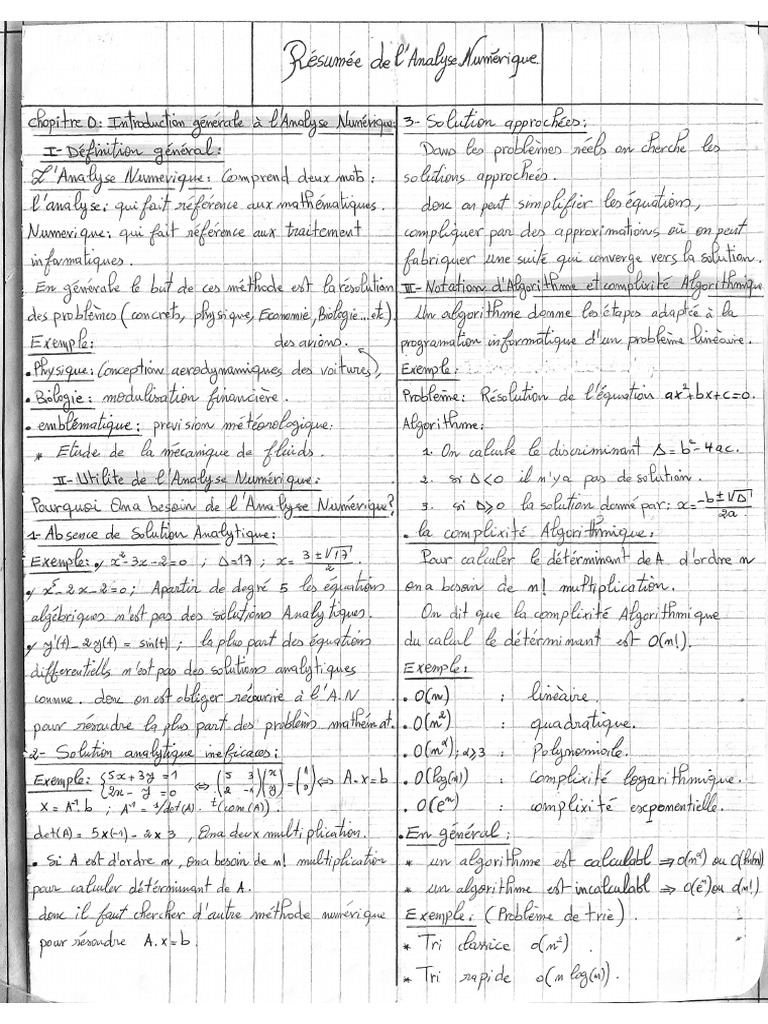 Résumée de l'Analyse Numérique.
Chapitre 0: Introduction générale à l'Analyse Numérique
I- Définition général:
L'Analyse Numerique: Comprend deux mots:
l'analyse: qui fait référence aux mathématiques.
Numerique: qui fait référence aux traitement
informatiques.
En générale le but de ces méthode est la résolution
des problèmes (concrets, physique, Economie, Biologie...etc).
Exemple: des avions.
• Physique: Conception aerodynamiques des voitures,
• Bôlogie: modulisation financière.
• emblématique: prevision météorologique.
* Etude de la mécanique de fluids.
II- Utilite de l'Analyse Numérique:
Pourquoi Ona besoin de l'Analyse Numérique?
1- Absence de Solution Analytique:
Exemple: x²-3x-2=0 ; Δ=17 ; x= (3±√17)/2
x⁵-2x-2=0 ; Apartir de degré 5 les équations
algébriques n'est pas des solutions Analytiques.
y'(t)-2y(t) = sin(t) ; la plus part des équations
differentiells n'est pas des solutions analytiques
connue. donc on est obliger récourire à l'A.N
pour résoudre la plus part des problèms mathémat.
2- Solution analytique inefficaces:
Exemple: {5x+3y=1 2x-y=0 ⇔ (5 3 2 -1)(x y)=(1 0) ⇔ A.x=b
X = A⁻¹.b ; A⁻¹ = 1/det(A) . ᵗ(com(A)).
det(A) = 5x(-1) - 2x3 , Ona deux multiplication.
• Si A est d'ordre n, ona besoin de n! multiplication
pour calculer détérminant de A.
donc il faut chercher d'autre méthode numérique
pour résoudre A.x=b.
3- Solution approchées:
Dans les problèmes réels on cherche les
solutions approcheés.
donc on peut simplifier les équations,
compliquer par des approximations où on peut
fabriquer une suite qui converge vers la solution.
III- Notation d'Algorithme et complixité Algorithmique
Un algorithme donne les étapes adaptcé à la
programation informatique d'un problème linéaire.
Exemple:
Problème: Résolution de l'équation ax²+bx+c=0.
Algorithme:
1. On calcule le discriminant Δ=b²-4ac.
2. si Δ<0 il n'ya pas de solution.
3. si Δ≥0 la solution donné par: x= (-b±√Δ)/2a
• la complixité Algorithmique:
Pour calculer le détérminant de A d'ordre n
ona besoin de n! multiplication.
On dit que la complixité Algorithmique
du calcul le détérminant est O(n!).
Exemple:
• O(n) : linéaire.
• O(n²) : quadratique.
• O(nᵅ); α≥3 : Polynomiale.
• O(log(n)) : complixité logarithmique.
• O(eⁿ) : complixité exponentielle.
• En général:
* un algorithme est calculabl ⇒ O(nᵅ) ou O(ln(n))
* un algorithme est incalculabl ⇒ O(eⁿ) ou O(n!)
Exemple: (Problème de trie).
* Tri classice O(n²).
* Tri rapide O(n log(n)).